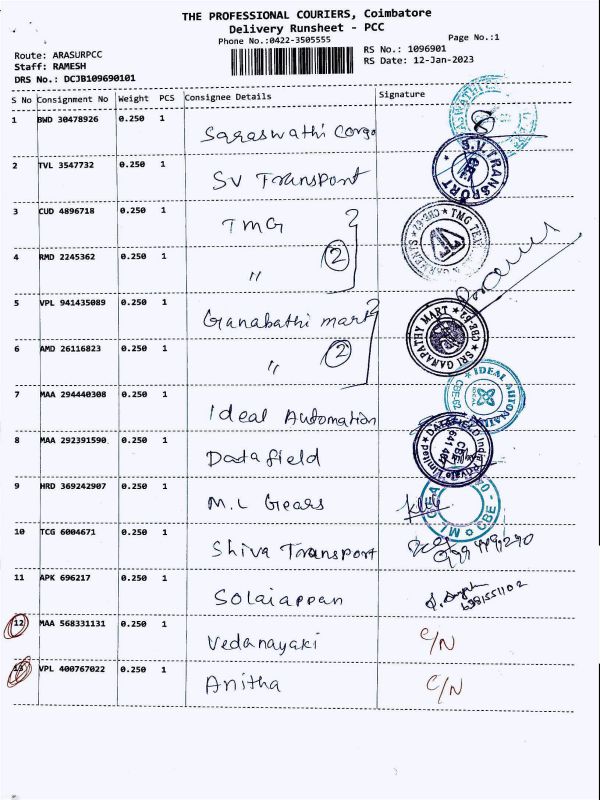 THE PROFESSIONAL COURIERS, Coimbatore
Delivery Runsheet - PCC
Phone No.:0422-3505555
Page No.:1
Route: ARASURPCC
RS No.: 1096901
Staff: RAMESH
RS Date: 12-Jan-2023
DRS No.: DCJB109690101
S No Consignment No Weight PCS Consignee Details Signature
1 BWD 30478926 0.250 1 Saraswathi Corgo
2 TVL 3547732 0.250 1 SV Transport
S.V. TRANSPORT
3 CUD 4896718 0.250 1 TMG
4 RMD 2245362 0.250 1 〃 2
5 VPL 941435089 0.250 1 Ganabathi mart
SRI GANAPATHY MART CBE-62
6 AMD 26116823 0.250 1 〃 2
7 MAA 294440308 0.250 1 Ideal Automation
IDEAL CBE-62
8 MAA 292391590 0.250 1 Datafield
DATAFIELD India Private Limited CBE 641 407
9 HRD 369242907 0.250 1 M.L Gears
10 TCG 6004671 0.250 1 Shiva Transport
11 APK 696217 0.250 1 Solaiappan
6381551102
12 MAA 568331131 0.250 1 Vedanayaki C/N
13 VPL 400767022 0.250 1 Anitha C/N